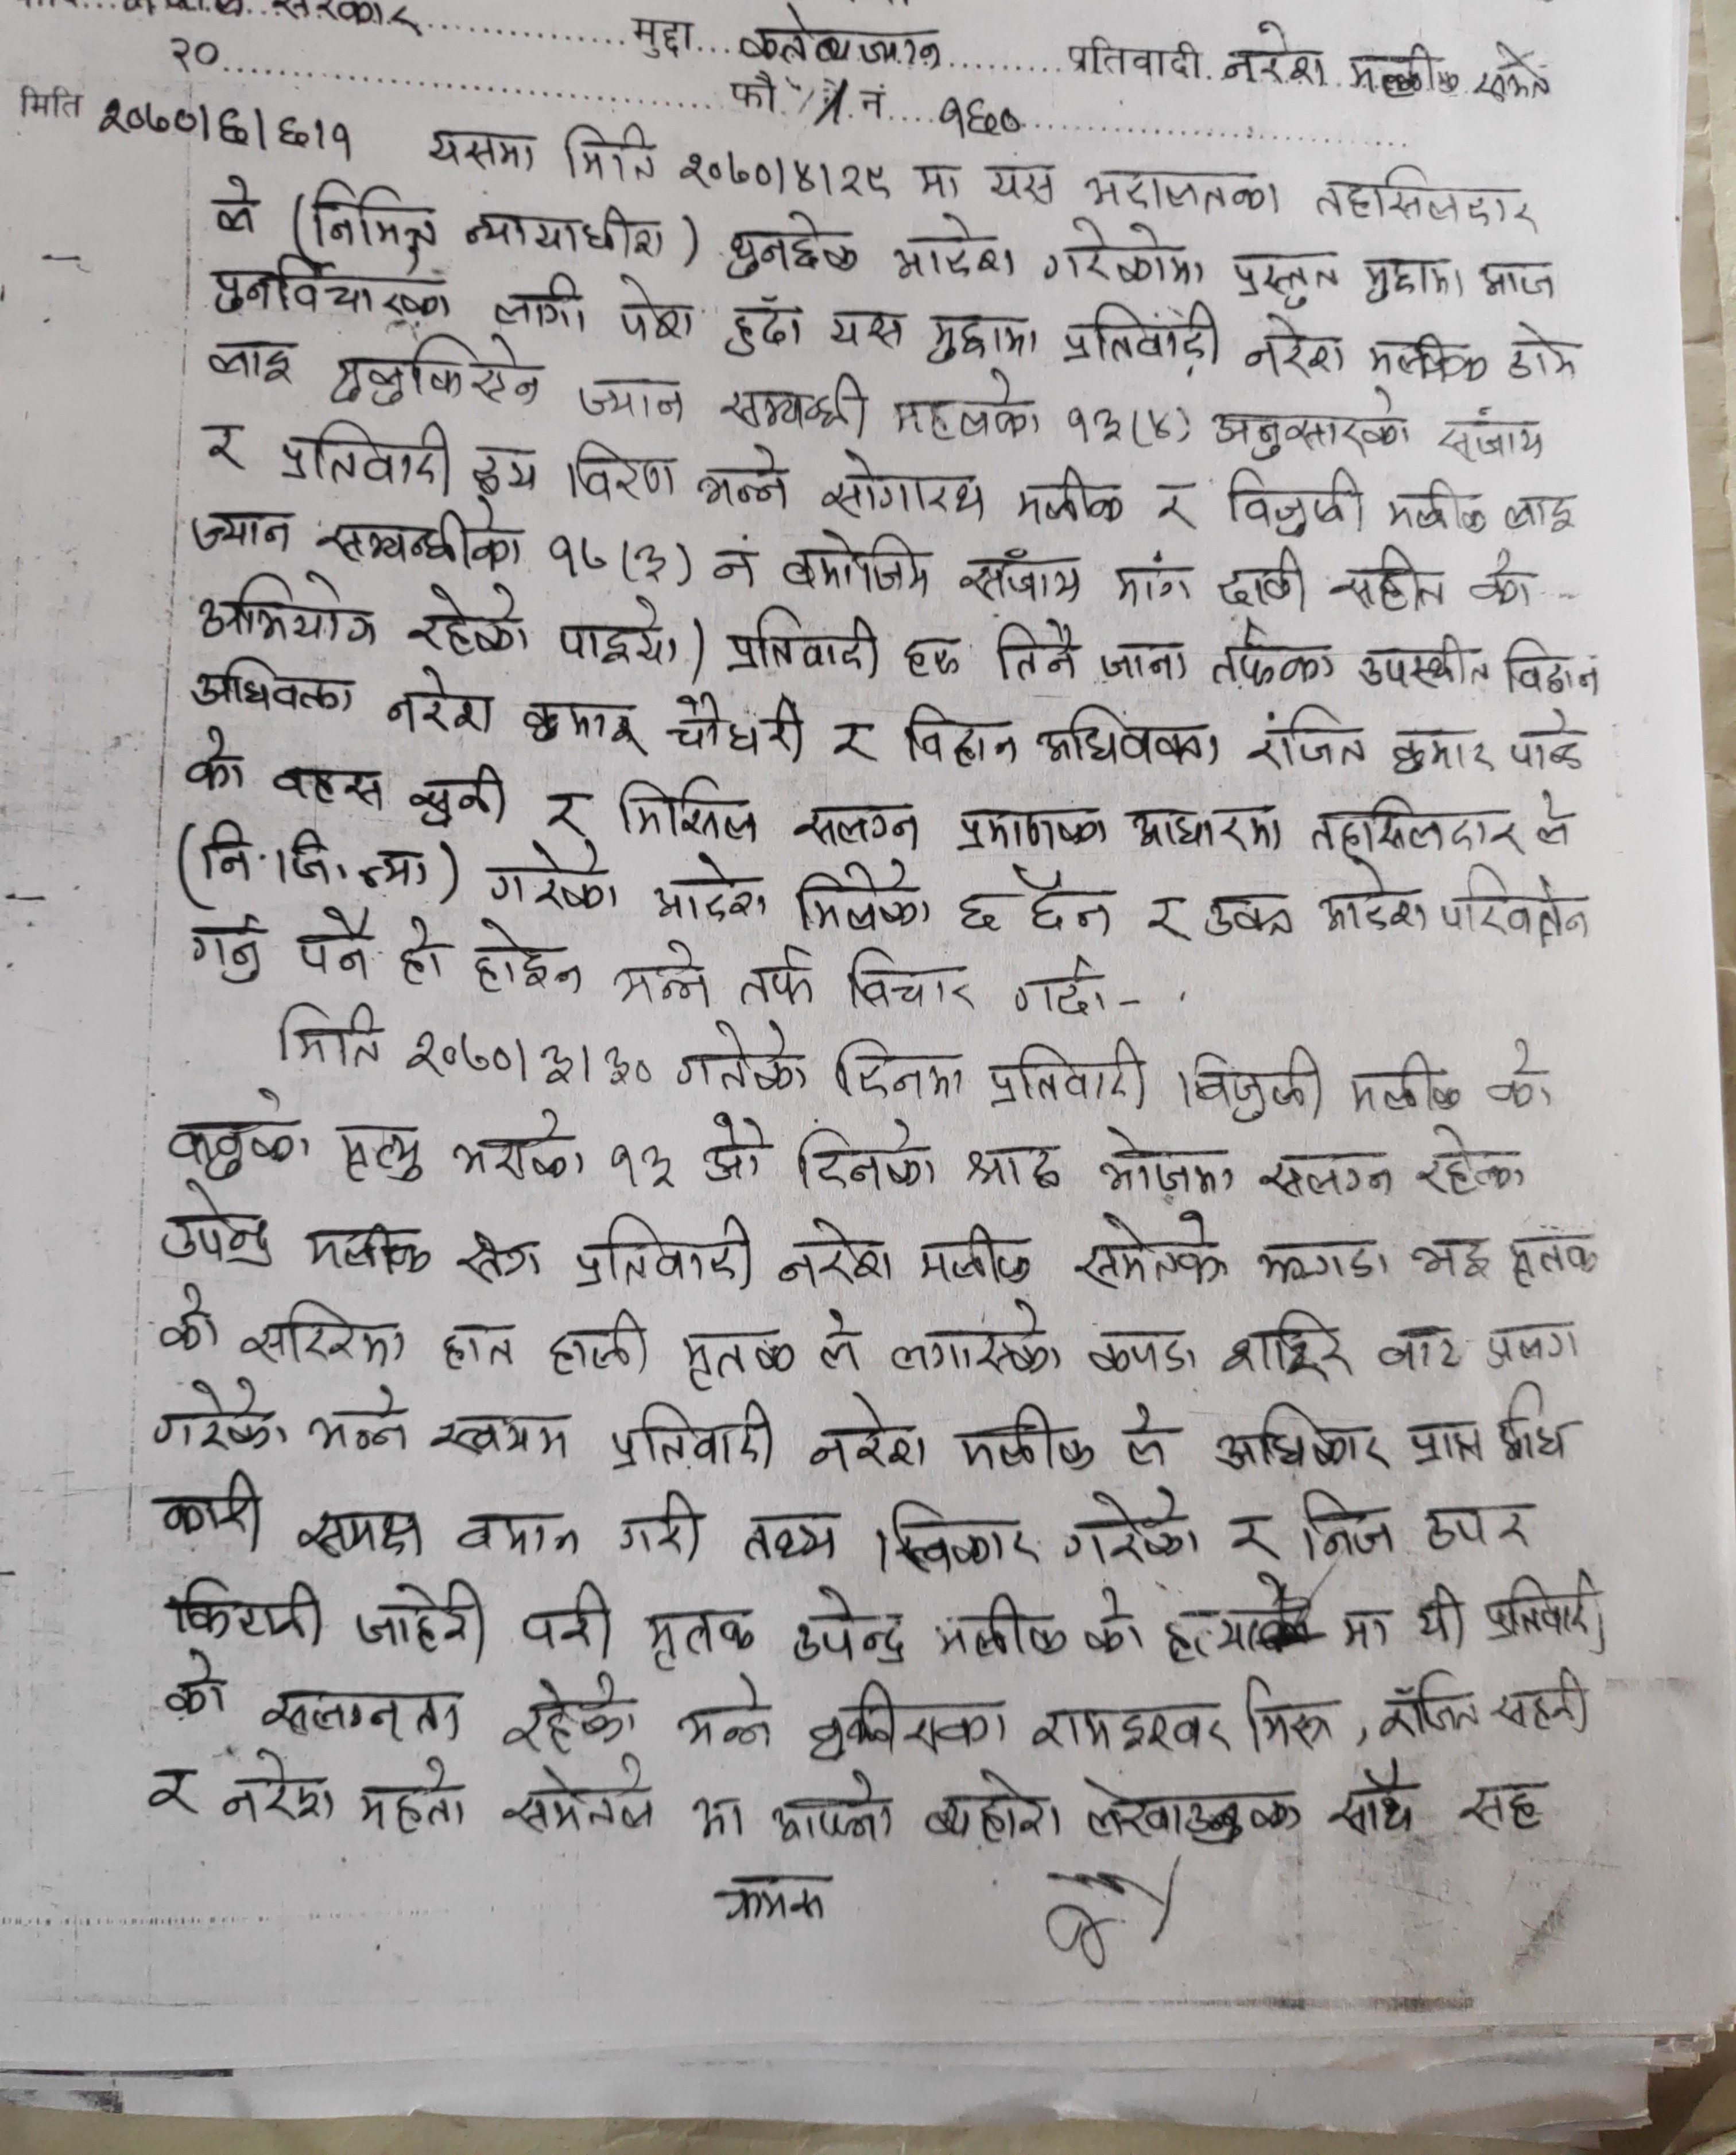 सरकार.................मुद्दा...कर्तव्यज्यान..........प्रतिवादी.नरेश मलीक समेत
२०.......................................फौ. नं....१६८०..............................
मिति २०७०।६।६।१ यसमा मिति २०७०।४।२९ मा यस अदालतका तहसिलदार
ले (निमित्त न्यायाधीश) थुनछेक आदेश गरेकोमा प्रस्तुत मुद्दामा आज
पुनर्विचारका लागी पेश हुँदा यस मुद्दामा प्रतिवादी नरेश मलीक डोम
लाइ मुलुकिऐन ज्यान सम्बन्धी महलको १३(४) अनुसारको सजाय
र प्रतिवादी द्वय विरण भन्ने सोगारथ मलीक र विजुली मलीक लाइ
ज्यान सम्बन्धीको १७(३) नं बमोजिम सजाय मांग दावी सहीत को
अभियोग रहेको पाइयो) प्रतिवादी हरु तिनै जाना तर्फका उपस्थीत विद्वान
अधिवक्ता नरेश कुमार चौधरी र विद्वान अधिवक्ता रंजित कुमार पाण्डे
को वहस सुनी र मिसिल सलग्न प्रमाणका आधारमा तहसिलदार ले
(नि.जि.न्या) गरेको आदेश मिलेको छ छैन र उक्त आदेश परिवर्तन
गर्नु पर्ने हो होइन भन्ने तर्फ विचार गर्दा-
मिति २०७०।३।३० गतेको दिनमा प्रतिवादी विजुली मलीक को
मृत्यु भएको १३ औ दिनको श्राद्ध भोजमा सलग्न रहेका
उपेन्द्र मलीक संग प्रतिवादी नरेश मलीक समेतको झगडा भइ मृतक
को सरिरमा हात हाली मृतक ले लगाएको कपडा शरिर बाट अलग
गरेको भन्ने स्वयम प्रतिवादी नरेश मलीक ले अधिकार प्राप्त अधि
कारी समक्ष वयान गरी तथ्य स्विकार गरेको र निज उपर
किटानी जाहेरी परी मृतक उपेन्द्र मलीक को हत्या मा यी प्रतिवादी
को सलग्नता रहेको भन्ने रामइश्वर मिश्र, रंजित सहनी
र नरेश महतो समेतले आफ्नो व्यहोरा लेखाउनुका साथै सह
क्रमस